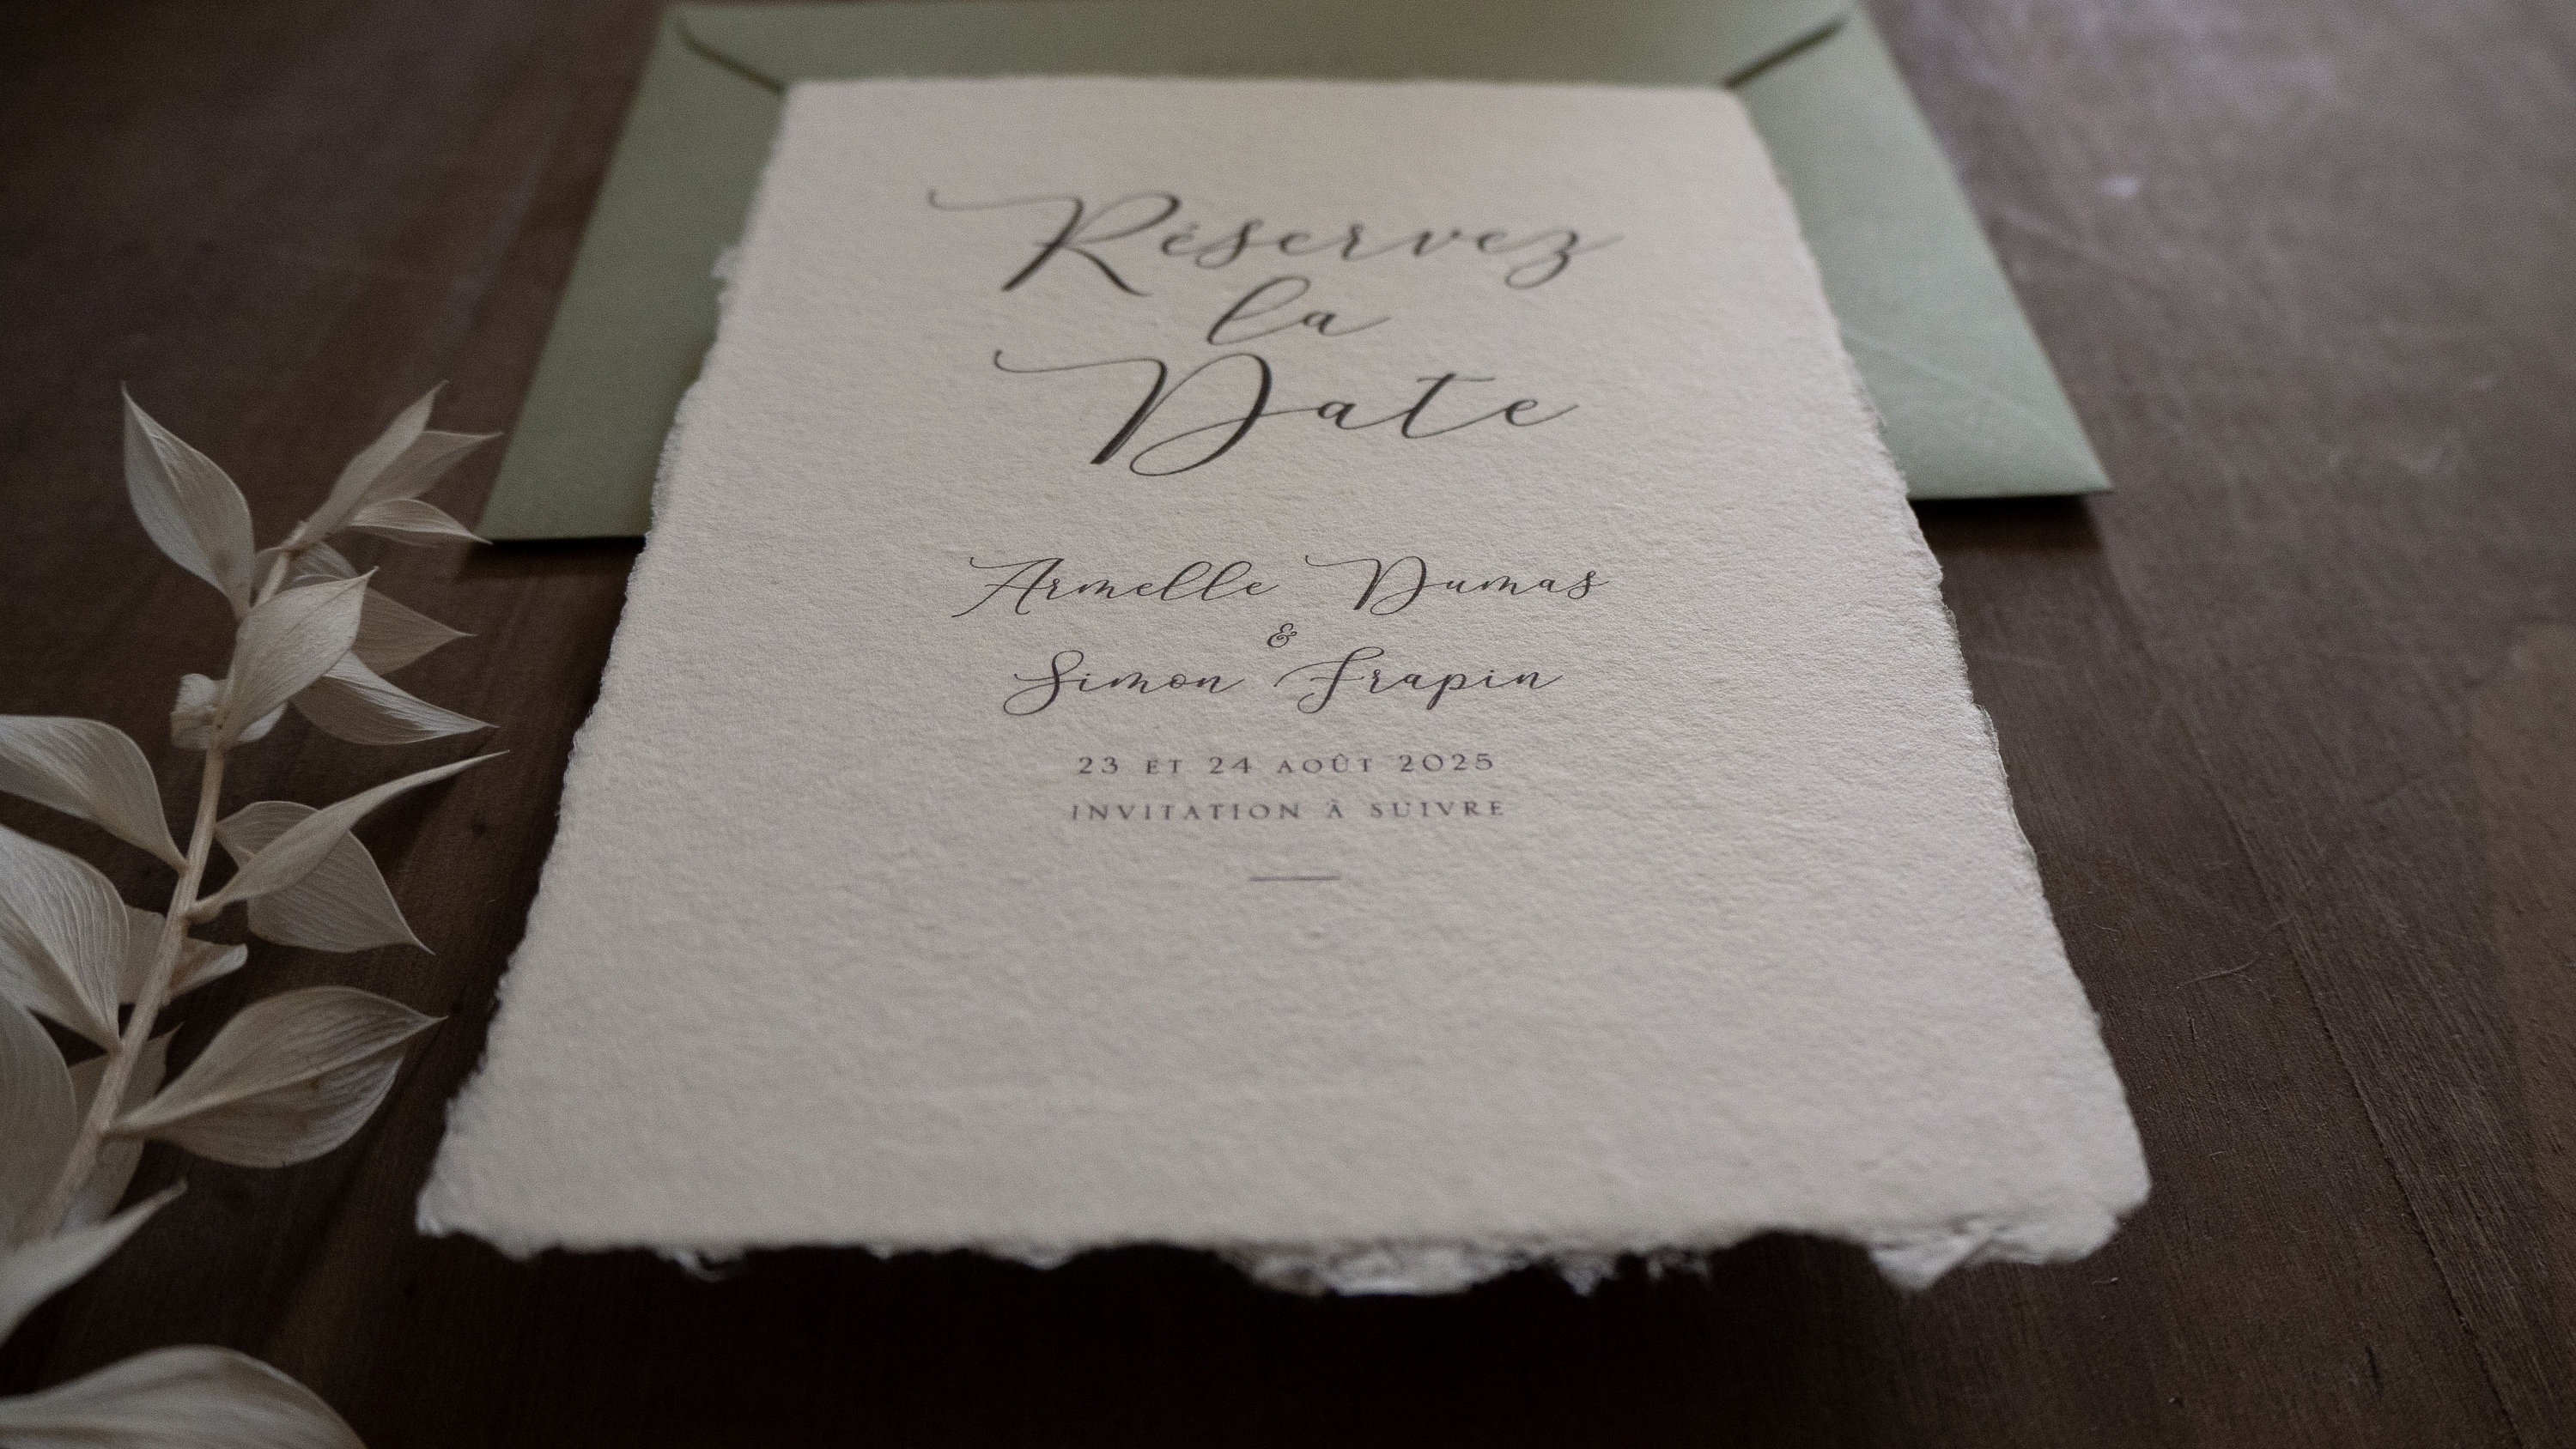 Réservez
la
Date
Armelle Dumas
&
Simon Frapin
23 ET 24 AOÛT 2025
INVITATION À SUIVRE